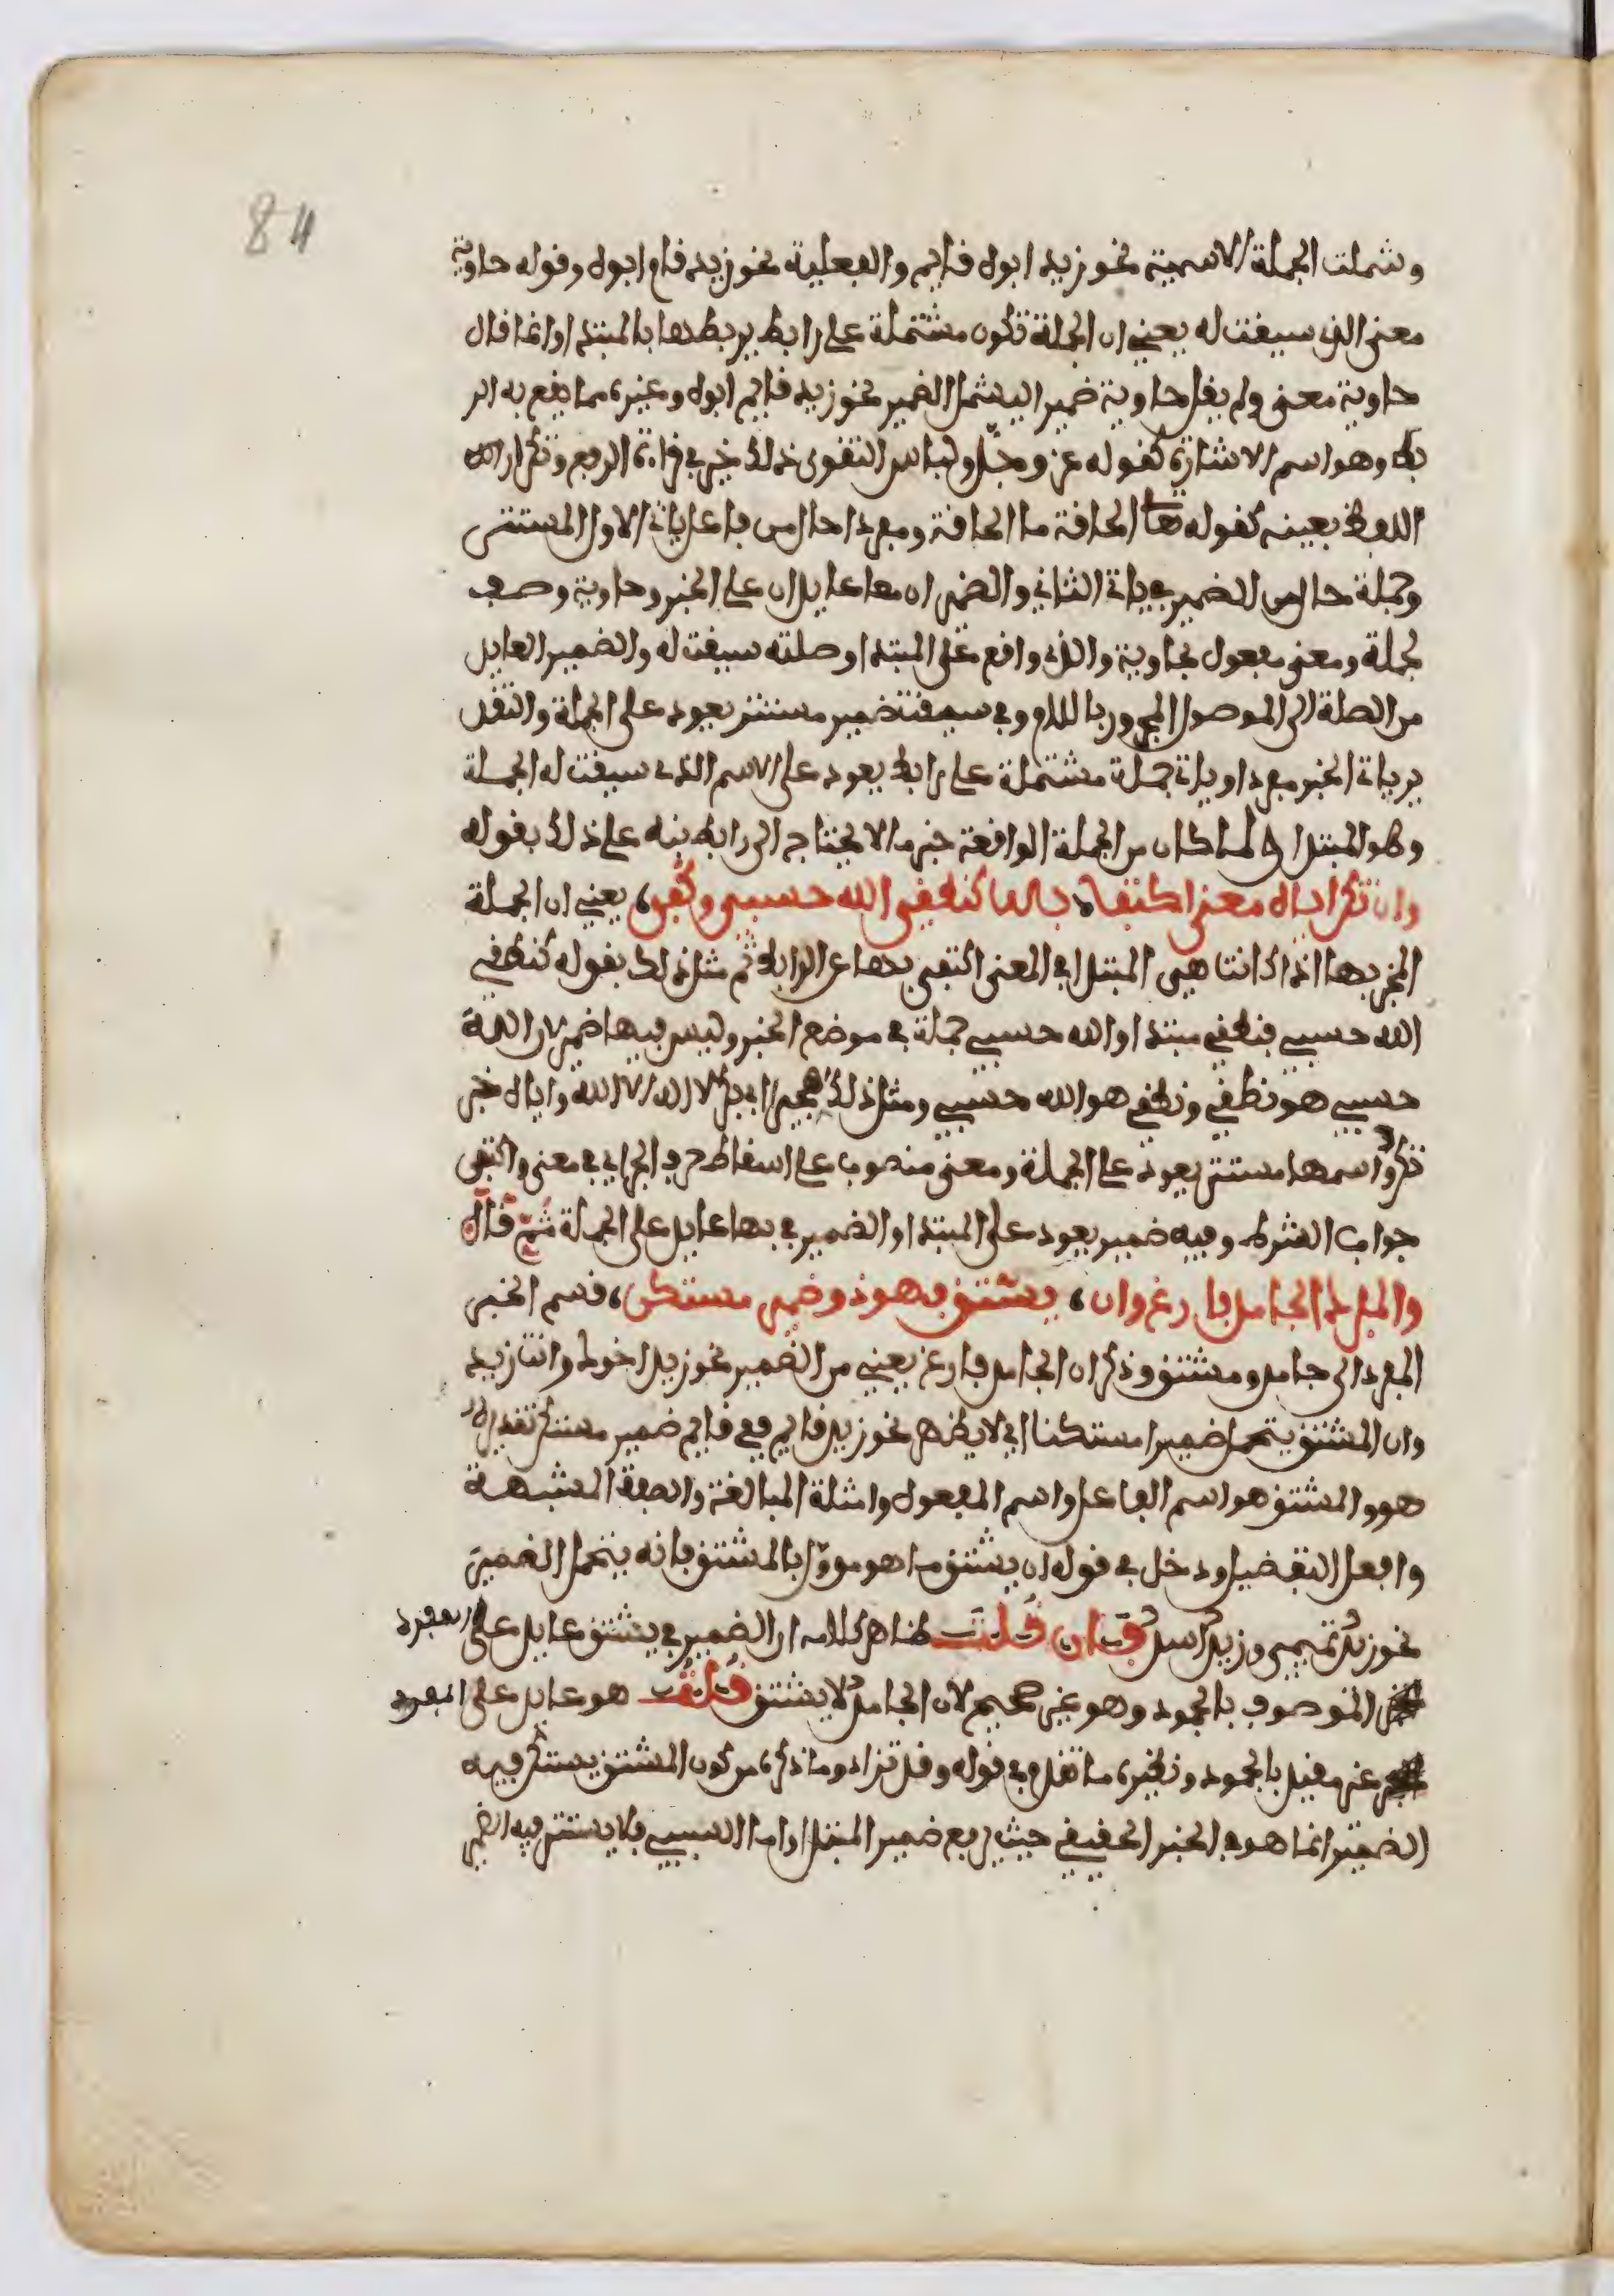 84
وشملت الجملة الاسمية نحو زيد ابوه قايم والفعلية نحو زيد قام ابوه وقوله حاوية
معنى الذي سيقت له يعني ان الجملة تكون مشتملة على رابط يربطها بالمبتدا وانما قال
حاوية معنى ولم يقل حاوية ضمير اليشمل الضمير نحو زيد قايم ابوه وغيره مما يقع به الر
بط وهو اسم الاشارة كقوله عز وجل ولباس التقوى ذلك خير في قراءة الرفع وتكرار
اللفظ بعينه كقوله تعا الحاقة ما الحاقة ومفردا حال من فاعل ياتي الاول المستتر
وجملة حال من الضمير في ياتي الثاني والضميران معا عايدان على الخبر وحاوية وصف
لجملة ومعنى مفعول بحاوية والذي واقع على المبتدا وصلته سيقت له والضمير العايد
من الصلة الى الموصول المجرور باللام وفي سيقت ضمير مستتر يعود على الجملة والتقد
ير ياتي الخبر مفردا وياتي جملة مشتملة على رابط يعود على الاسم الذي سيقت له الجملة
وهو المبتدا ولما كان من الجملة الواقعة خبرا ما لا يحتاج الى رابط نبه على ذلك بقوله
وان تكن اياه معنى اكتفا، بها كنطقي الله حسبي وكفى، يعني ان الجملة
المخبر بها اذا كانت هي المبتدا في المعنى اكتفى بها عن الرابط ثم مثل ذلك بقوله كنطقي
الله حسبي فنطقي مبتدا والله حسبي جملة في موضع الخبر وليس فيها ضمير لان الله
حسبي هو نطقي ونطقي هو الله حسبي ومثل ذلك هجيرا ابي بكر لا اله الا الله واياه خبر
تكن واسمها مستتر يعود على الجملة ومعنى منصوب على اسقاط حرف الجر اي في معنى واكتفى
جواب الشرط وفيه ضمير يعود على المبتدا والضمير في بها عايد على الجملة ثم قال
والمفرد الجامد فارغ وان، يشتق فهو ذو ضمير مستكن، قسم الخبر
المفرد الى جامد ومشتق وذكر ان الجامد فارغ يعني من الضمير نحو زيد اخوك وانت زيد
وان المشتق يتحمل ضميرا مستكنا اي لا يظهر نحو زيد قايم ففي قايم ضمير مستتر تقديره
هو والمشتق هو اسم الفاعل واسم المفعول وامثلة المبالغة والصفة المشبهة
وافعل التفضيل ودخل في قوله ان يشتق ما هو موول بالمشتق فانه يتحمل الضمير
نحو زيد تميمي وزيد اسد فان قلت ظاهر كلامه ان الضمير في يشتق عايد على المفرد
الموصوف بالجمود وهو غير صحيح لان الجامد لا يشتق قلت هو عايد على المفرد
غير مقيد بالجمود ونظيره ما تقدم في قوله وقد تزاد وما ذكره من كون المشتق يستتر فيه
الضمير انما هو في الخبر الحقيقي حيث رفع ضمير المبتدا واما السببي فلا يستتر فيه الضمير